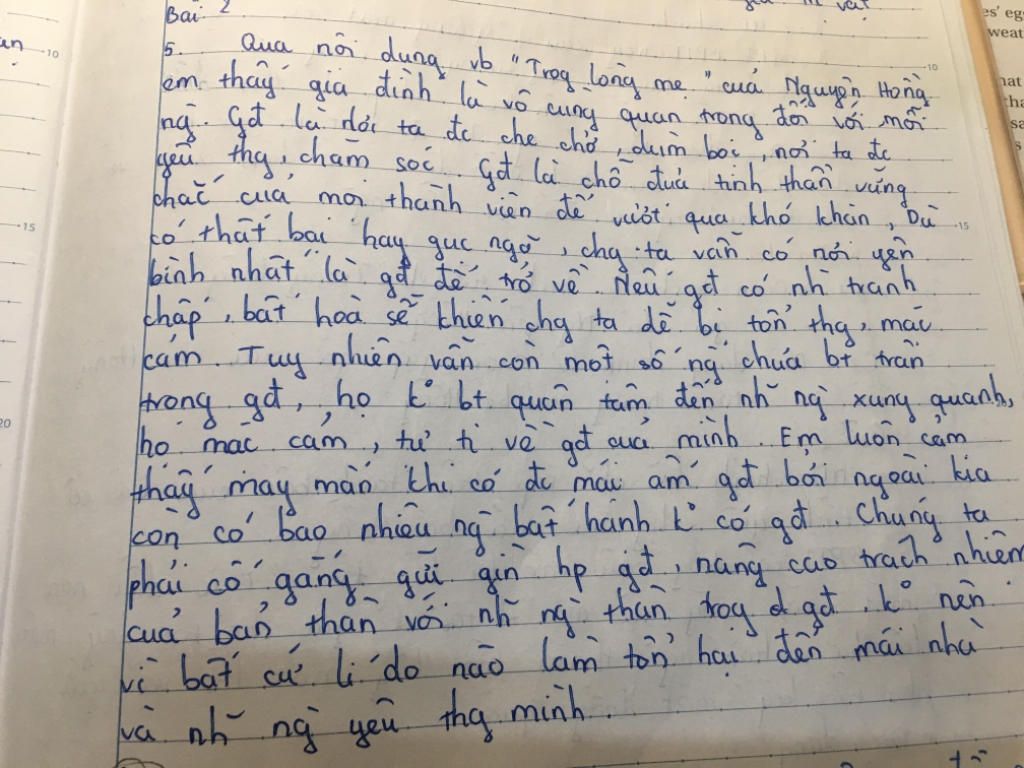 Bài 2
5. Qua nội dung vb "Trog lòng mẹ" của Nguyên Hồng
em thấy gia đình là vô cùng quan trọng đối với mỗi
ng. Gđ là nơi ta đc che chở, đùm bọc, nơi ta đc
yêu thg, chăm sóc. Gđ là chỗ dựa tinh thần vững
chắc của mỗi thành viên để vượt qua khó khăn, Dù
có thất bại hay gục ngã, chg ta vẫn có nơi yên
bình nhất là gđ để trở về. Nếu gđ có nh tranh
chấp, bất hoà sẽ khiến chg ta dễ bị tổn thg, mặc
cảm. Tuy nhiên vẫn còn một số ng chưa bt trân
trọng gđ, họ k° bt quan tâm đến nh ng xung quanh,
họ mặc cảm, tự ti về gđ của mình. Em luôn cảm
thấy may mắn khi có đc mái ấm gđ bởi ngoài kia
còn có bao nhiêu ng bất hạnh k° có gđ. Chúng ta
phải cố gắng giữ gìn hp gđ, nâng cao trách nhiệm
của bản thân với nh ng thân trog gđ. k° nên
vì bất cứ lí do nào làm tổn hại đến mái nhà
và nh ng yêu thg mình.